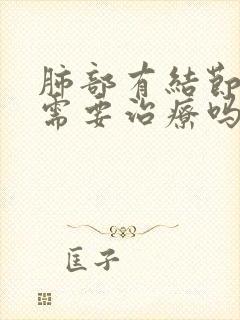 肺部有結節
需要治療嗎
匡子